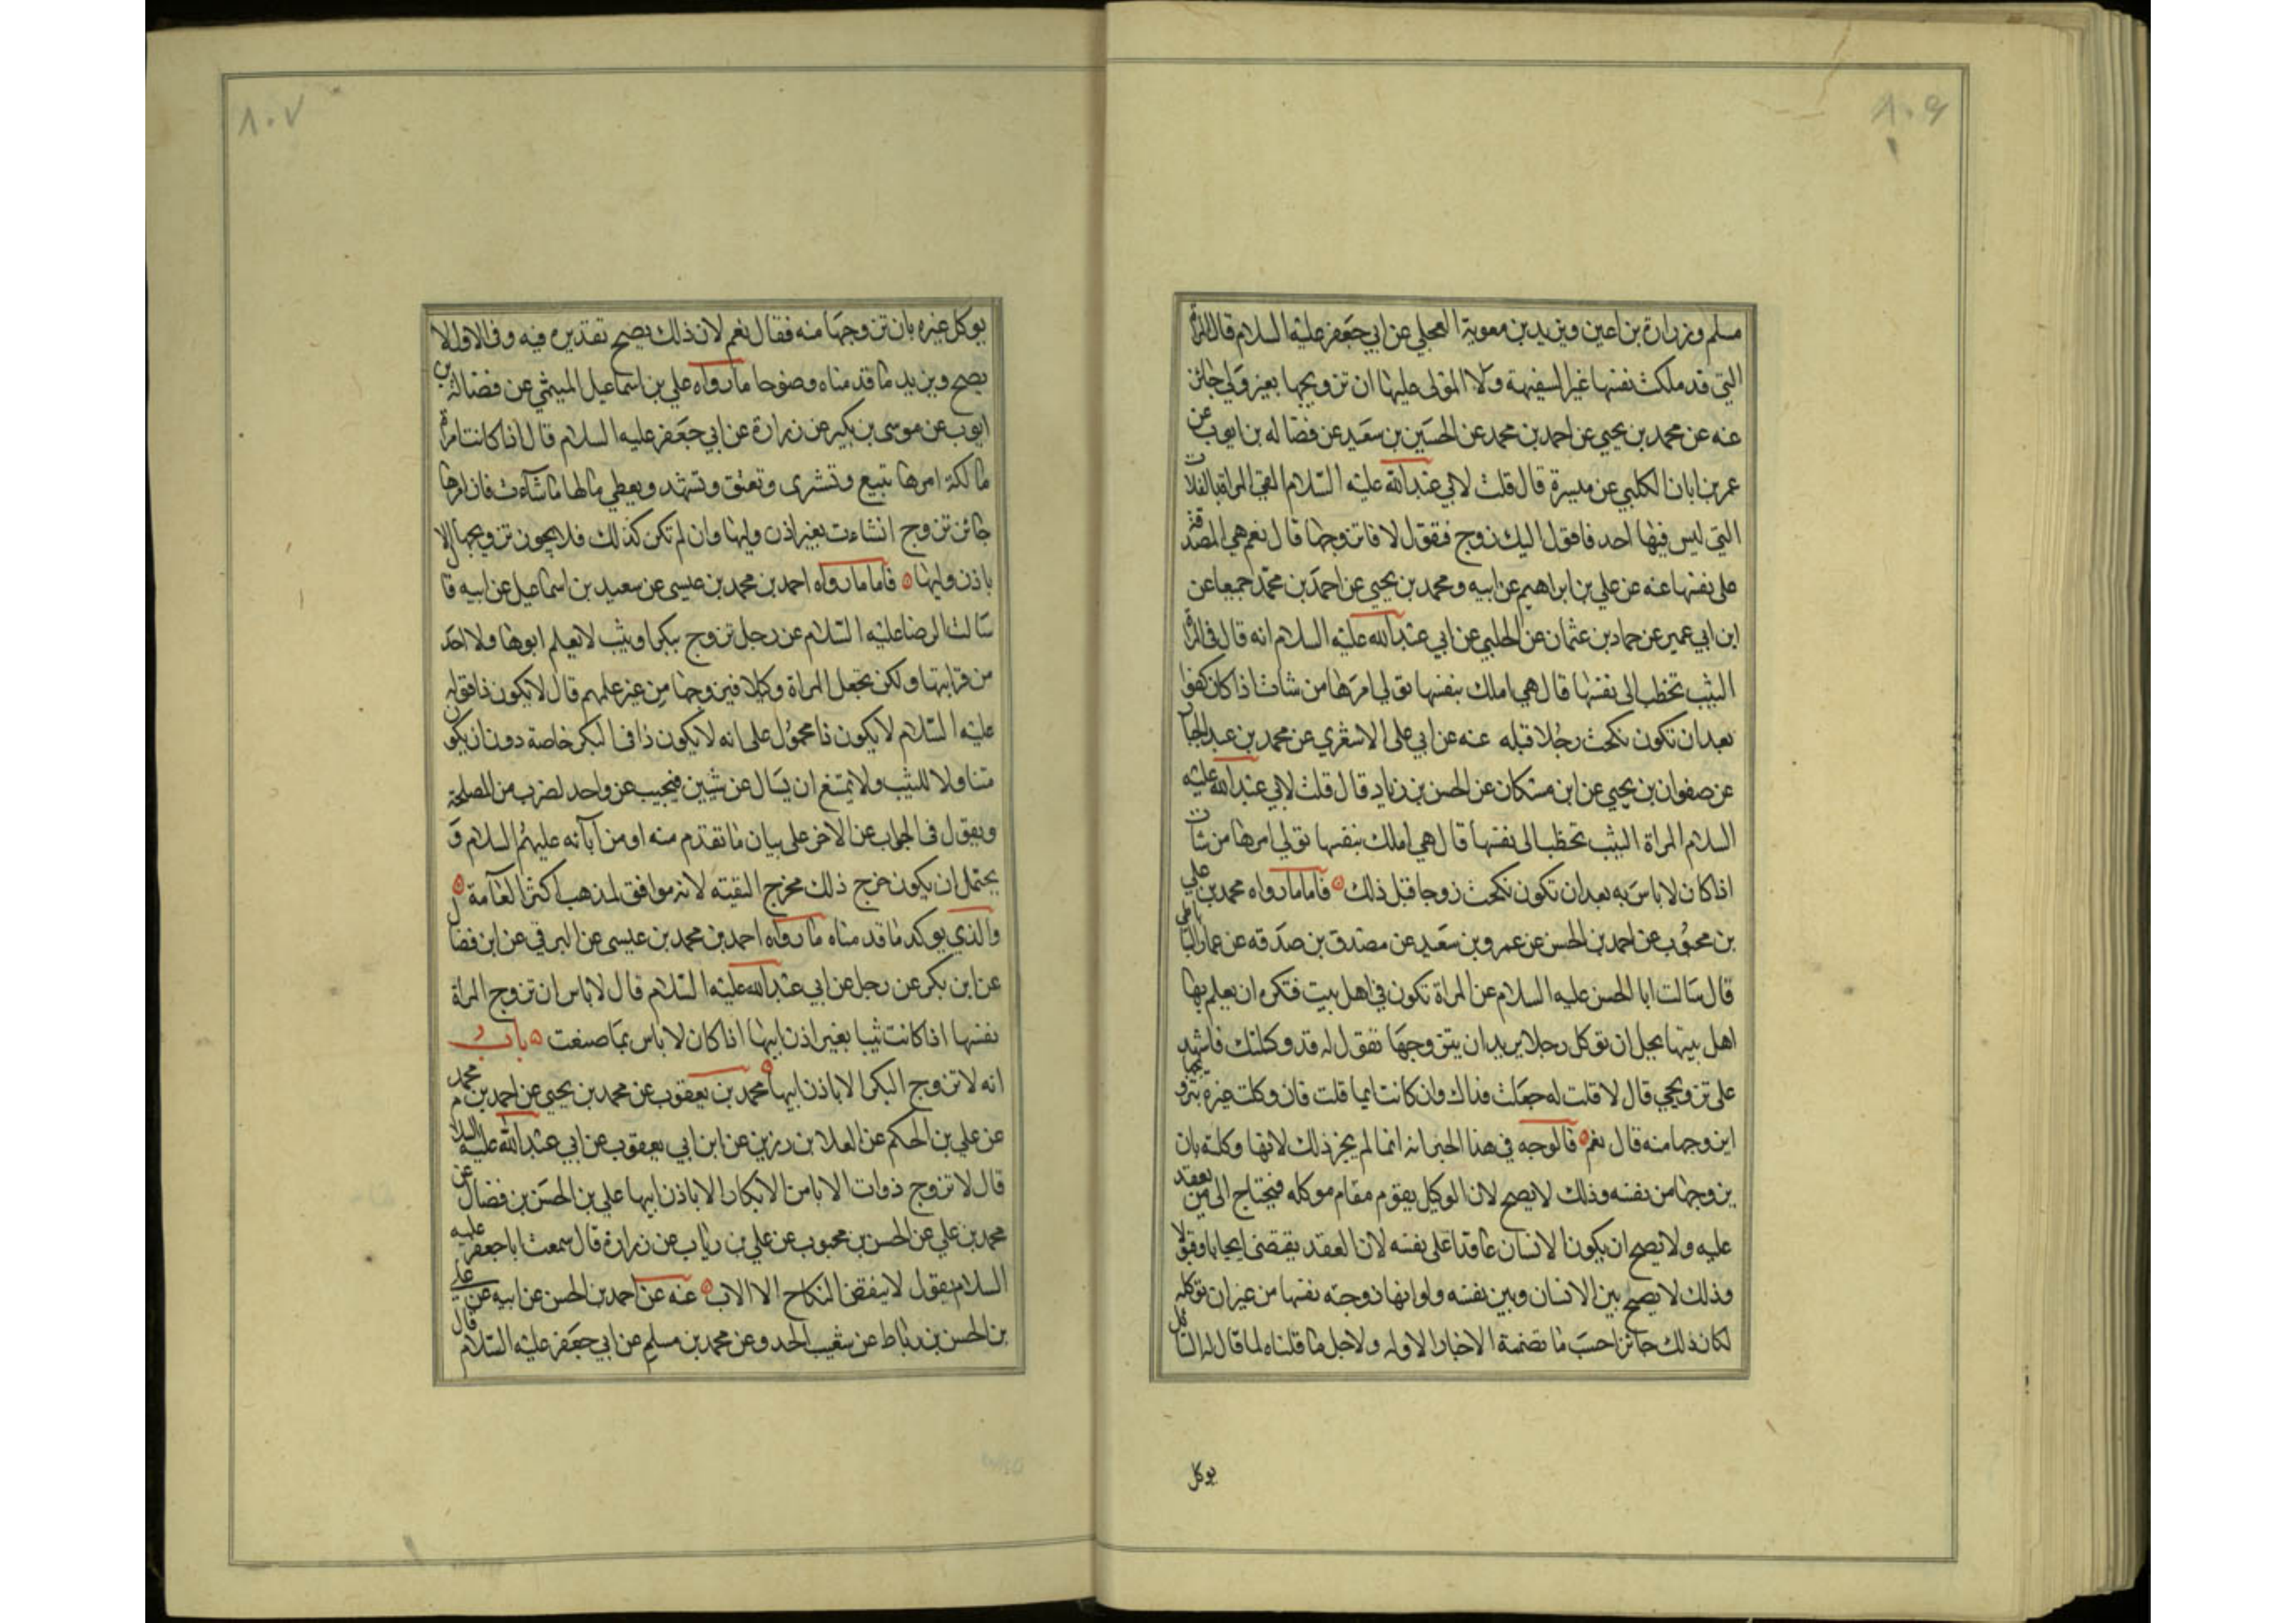 ٨٠٦
مسلم وزرارة بن اعين وبزيد بن معوية العجلي عن ابي جعفر عليه السلام قال المراة
التي قد ملكت نفسها غير السفيهة ولا المولى عليها ان تزويجها بغير ولي جائز
عنه عن محمد بن يحيى عن احمد بن محمد عن الحسين بن سعيد عن فضاله بن ايوب عن
عمر بن ابان الكلبي عن ميسرة قال قلت لابي عبد الله عليه السلام القى المراة بالفلات
التي ليس فيها احد فاقول اليك زوج فتقول لا فاتزوجها قال نعم هي المصدقة
على نفسها عنه عن علي بن ابراهيم عن ابيه ومحمد بن يحيى عن احمد بن محمد جميعا عن
ابن ابي عمير عن حماد بن عثمان عن الحلبي عن ابي عبد الله عليه السلام انه قال في المراة
الثيب تخطب الى نفسها قال هي املك بنفسها تولي امرها من شات اذا كان كفوا
بعد ان تكون نكحت رجلا قبله عنه عن ابي على الاشعري عن محمد بن عبد الجبار
عن صفوان بن يحيى عن ابن مسكان عن الحسن بن زياد قال قلت لابي عبد الله عليه
السلام المراة الثيب تخطب الى نفسها قال هي املك بنفسها تولي امرها من شات
اذا كان لا باس به بعد ان تكون نكحت زوجا قبل ذلك فاما ما رواه محمد بن علي
بن محبوب عن احمد بن الحسن عن عمرو بن سعيد عن مصدق بن صدقه عن عمار الساباطي
قال سالت ابا الحسن عليه السلام عن المراة تكون في اهل بيت فتكره ان يعلم بها
اهل بيتها يحل ان توكل رجلا يريد ان يتزوجها تقول له قد وكلتك فاشهد
على تزويجي قال لا قلت له جعلت فداك وان كانت ايما قال وان كانت ايما قلت فان وكلت غيره بتزو
ايزوجها منه قال نعم فالوجه في هذا الخبر انه انما لم يجز ذلك لانها وكلته بان
يزوجها من نفسه وذلك لا يصح لان الوكيل يقوم مقام موكله فيحتاج الى من يعقد
عليه ولا يصح ان يكون الانسان عاقدا على نفسه لان العقد يقتضى ايجابا وقبولا
وذلك لا يصح بين الانسان وبين نفسه ولو انها زوجته نفسها من غير ان توكله
لكان ذلك جائزا حسب ما تضمنة الاخبار الاوله ولاجل ما قلناه لما قال له السائل
يوكل
٨٠٧
يوكل غيره بان تزوجها منه فقال نعم لان ذلك يصح تقديره فيه وفي الاول لا
يصح ويزيد ما قد مناه وضوحا ما رواه علي بن اسماعيل الميثمي عن فضالة بن
ايوب عن موسى بن بكير عن زرارة عن ابي جعفر عليه السلام قال اذا كانت امراة
مالكة امرها تبيع وتشرى وتعتق وتشهد وتعطي مالها ما شاءت فان امرها
جائز تزوج ان شاءت بغير اذن وليها وان لم تكن كذلك فلا يجوز تزويجها الا
باذن وليها فاما ما رواه احمد بن محمد بن عيسى عن سعيد بن اسماعيل عن ابيه قا
سالت الرضا عليه السلام عن رجل تزوج ببكر او ثيب لا يعلم ابوها ولا احد
من قراباتها ولكن تجعل المراة وكيلا فيزوجها من غير علمهم قال لا يكون ذا فقوله
عليه السلام لا يكون ذا محمول على انه لا يكون ذا في البكر خاصة دون ان يكون
متناولا للثيب ولا يمتنع ان يسال عن شيئين فيجيب عن واحد لضرب من المصلحة
ويقول في الجواب عن الاخر على بيان ما تقدم منه او من آبائه عليهم السلام و
يحتمل ان يكون خرج ذلك مخرج التقيته لانه موافق لمذهب اكثر العامة
والذي يوكد ما قد مناه ما رواه احمد بن محمد بن عيسى عن البرقي عن ابن فضال
عن ابن بكر عن رجل عن ابي عبد الله عليه السلام قال لا باس ان تزوج المراة
نفسها اذا كانت ثيبا بغير اذن ابيها اذا كان لا باس بما صنعت باب
انه لا تزوج البكر الا باذن ابيها محمد بن يعقوب عن محمد بن يحيى عن احمد بن محمد
عن علي بن الحكم عن العلا بن رزين عن ابن ابي يعقوب عن ابي عبد الله عليه السلام
قال لا تزوج ذوات الابا من الابكار الا باذن ابيها علي بن الحسن بن فضال عن
محمد بن علي عن الحسن بن محبوب عن علي بن رياب عن زرارة قال سمعت ابا جعفر عليه
السلام يقول لا ينقض النكاح الا الاب عنه عن احمد بن الحسن عن ابيه عن علي
بن الحسن بن رباط عن شعيب الحدو عن محمد بن مسلم عن ابي جعفر عليه السلام قال